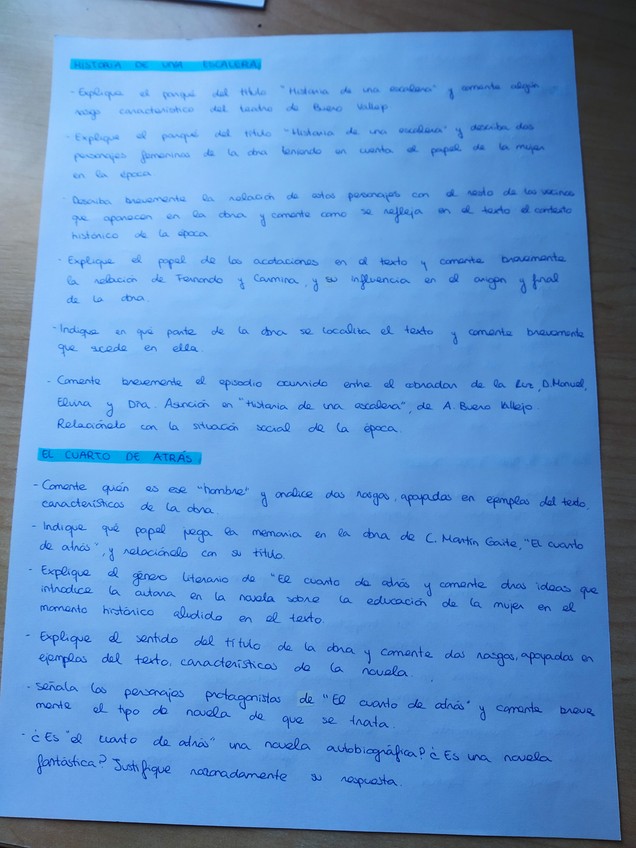 HISTORIA DE UNA ESCALERA
- Explique el porqué del título "Historia de una escalera" y comente algún
rasgo característico del teatro de Buero Vallejo
- Explique el porqué del título "Historia de una escalera" y describa dos
personajes femeninos de la obra teniendo en cuenta el papel de la mujer
en la época
Describa brevemente la relación de estos personajes con el resto de los vecinos
que aparecen en la obra y comente como se refleja en el texto el contexto
histórico de la época
- Explique el papel de las acotaciones en el texto y comente brevemente
la relación de Fernando y Carmina, y su influencia en el origen y final
de la obra.
- Indique en qué parte de la obra se localiza el texto y comente brevemente
que sucede en ella.
- Comente brevemente el episodio ocurrido entre el cobrador de la luz, D. Manuel,
Elvira y Dña. Asunción en "Historia de una escalera", de A. Buero Vallejo.
Relaciónelo con la situación social de la época.
EL CUARTO DE ATRÁS
- Comente quién es ese "hombre" y analice dos rasgos, apoyados en ejemplos del texto,
característicos de la obra
- Indique qué papel juega la memoria en la obra de C. Martín Gaite, "El cuarto
de atrás", y relaciónelo con su título.
- Explique el género literario de "El cuarto de atrás y comente dos ideas que
introduce la autora en la novela sobre la educación de la mujer en el
momento histórico aludido en el texto.
- Explique el sentido del título de la obra y comente dos rasgos, apoyados en
ejemplos del texto, característicos de la novela.
- Señala los personajes protagonistas de "El cuarto de atrás" y comente breve
mente el tipo de novela de que se trata.
- ¿Es "el cuarto de atrás" una novela autobiográfica? ¿Es una novela
fantástica? Justifique razonadamente su respuesta.